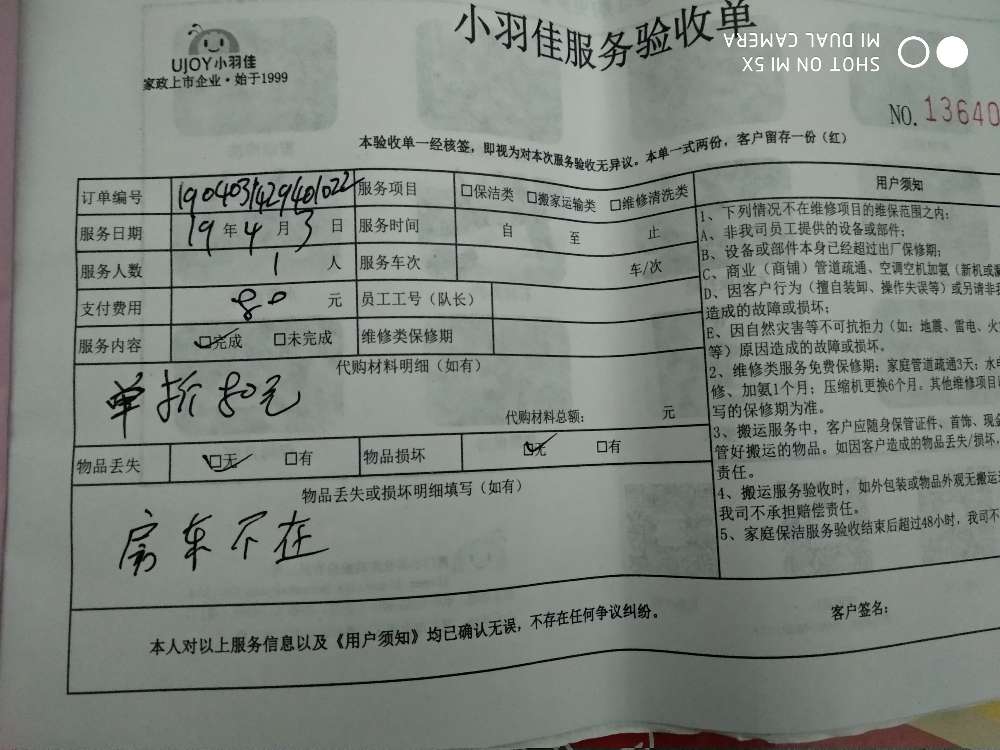 UJOY小羽佳
家政上市企业·始于1999
小羽佳服务验收单
SHOT ON MI 5X
MI DUAL CAMERA
NO. 13640
本验收单一经核签，即视为对本次服务验收无异议。本单一式两份，客户留存一份（红）
订单编号 1904031429401022 服务项目 □保洁类 □搬家运输类 □维修清洗类
服务日期 19年4月3日 服务时间 自 至 止
服务人数 1人 服务车次 车/次
支付费用 80元 员工工号（队长）
服务内容 ☑完成 □未完成 维修类保修期
代购材料明细（如有）
单折80元
代购材料总额： 元
物品丢失 ☑无 □有 物品损坏 ☑无 □有
物品丢失或损坏明细填写（如有）
房东不在
本人对以上服务信息以及《用户须知》均已确认无误，不存在任何争议纠纷。
客户签名：
用户须知
1、下列情况不在维修项目的维保范围之内；
A、非我司员工提供的设备或部件；
B、设备或部件本身已经超过出厂保修期；
C、商业（商铺）管道疏通、空调空机加氨（新机或
D、因客户行为（擅自装卸、操作失误等）或另请非
造成的故障或损坏；
E、因自然灾害等不可抗拒力（如：地震、雷电、火
等）原因造成的故障或损坏。
2、维修类服务免费保修期：家庭管道疏通3天；水
修、加氨1个月；压缩机更换6个月。其他维修项目
写的保修期为准。
3、搬运服务中，客户应随身保管证件、首饰、现金
管好搬运的物品。如因客户造成的物品丢失/损坏，
责任。
4、搬运服务验收时，如外包装或物品外观无搬运
我司不承担赔偿责任。
5、家庭保洁服务验收结束后超过48小时，我司不